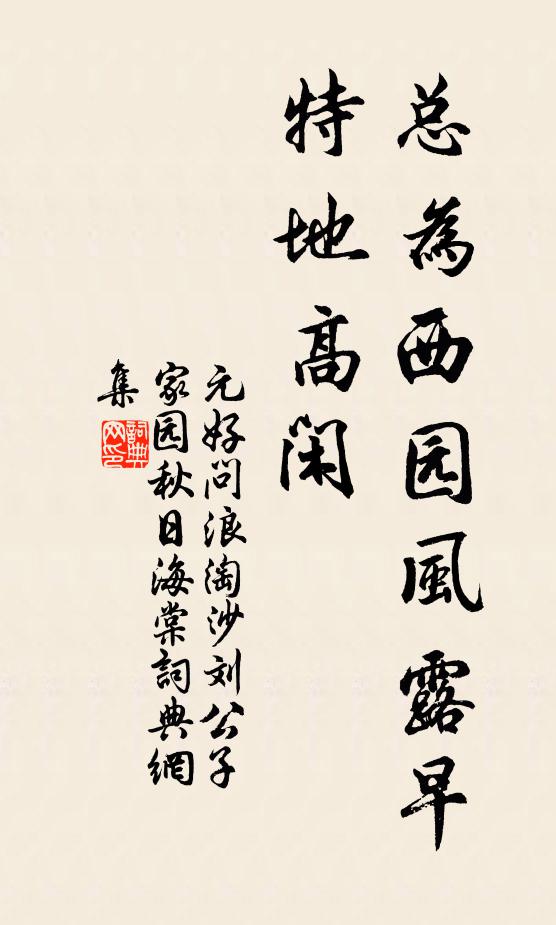 总為西园風露早
特地高闲
元好问浪淘沙刘公子
家园秋日海棠詞典網
集
詞典网印